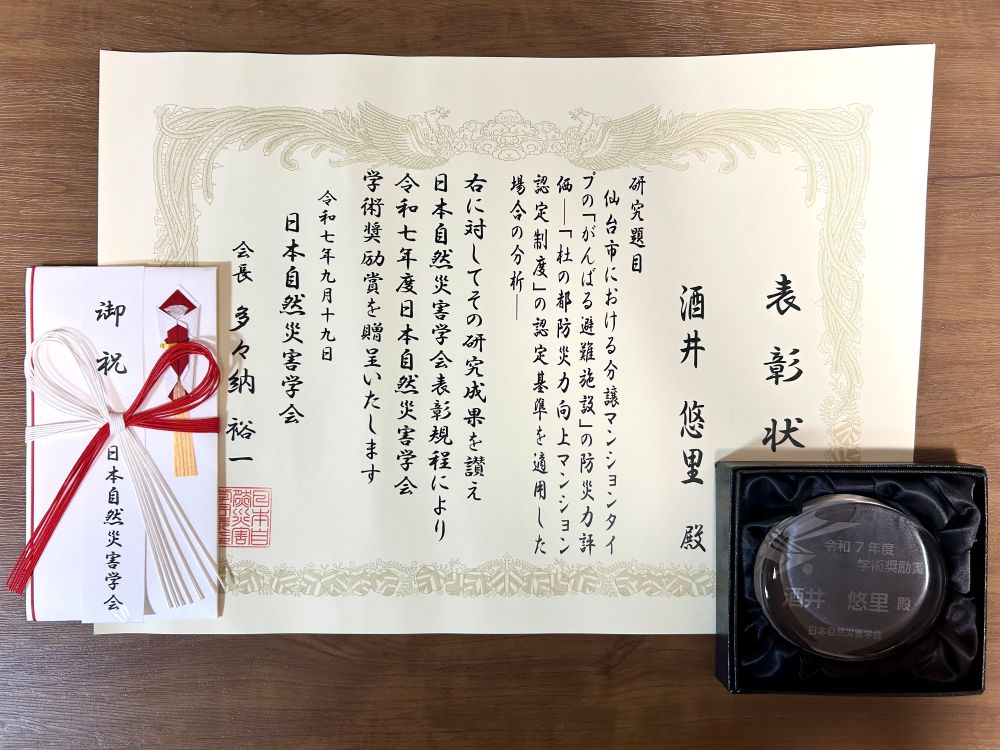 表彰状
酒井 悠里 殿
研究題目
仙台市における分譲マンションタイ
プの「がんばる避難施設」の防災力評
価―「杜の都防災力向上マンション
認定制度」の認定基準を適用した
場合の分析―
右に対してその研究成果を讃え
日本自然災害学会表彰規程により
令和七年度日本自然災害学会
学術奨励賞を贈呈いたします
令和七年九月十九日
日本自然災害学会
会長 多々納 裕一
御祝
日本自然災害学会
令和7年度
学術奨励賞
酒井 悠里 殿
日本自然災害学会